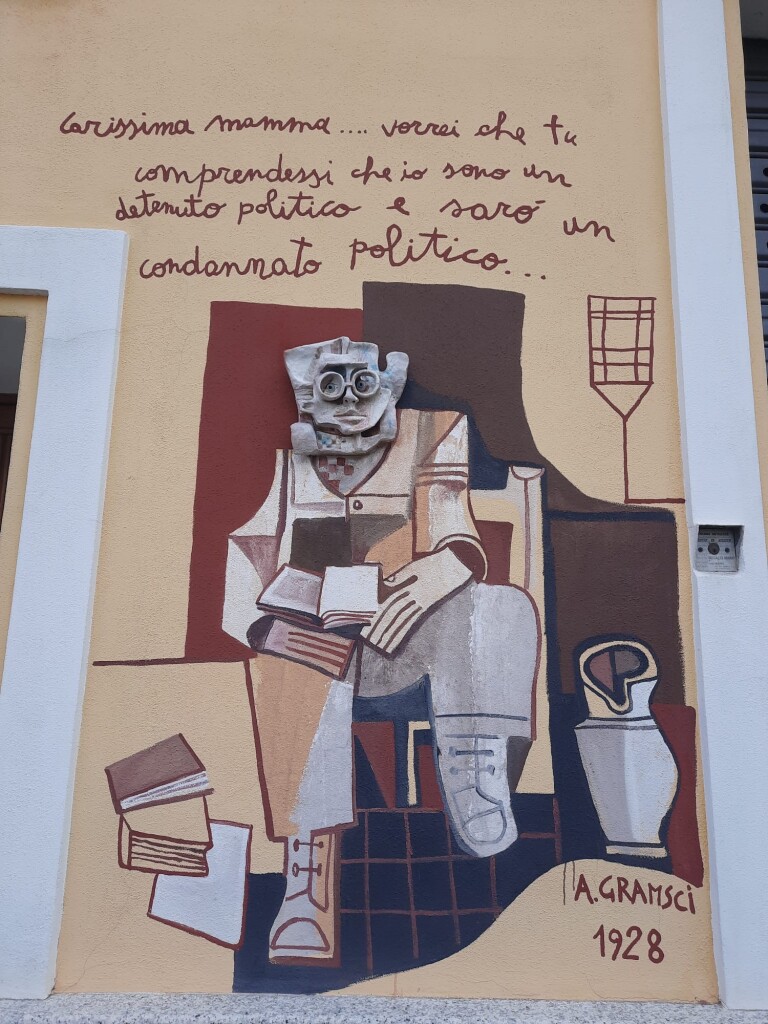 carissima mamma.... vorrei che tu
comprendessi che io sono un
detenuto politico e saró un
condannato politico...
A. GRAMSCI
1928